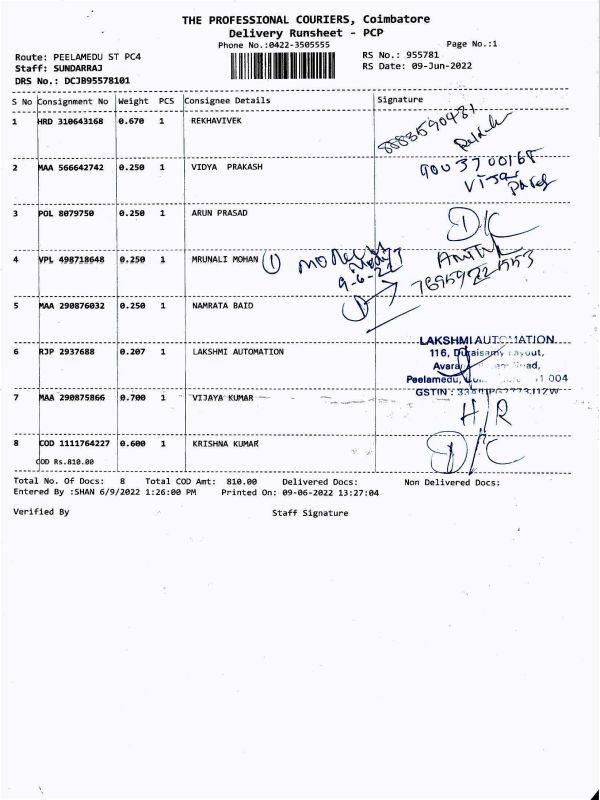 THE PROFESSIONAL COURIERS, Coimbatore
Delivery Runsheet - PCP
Phone No.:0422-3505555
Page No.:1
Route: PEELAMEDU ST PC4
RS No.: 955781
Staff: SUNDARRAJ
RS Date: 09-Jun-2022
DRS No.: DCJB95578101
S No Consignment No Weight PCS Consignee Details Signature
1 HRD 310643168 0.670 1 REKHAVIVEK
8883590481
2 MAA 566642742 0.250 1 VIDYA PRAKASH
3 POL 8079750 0.250 1 ARUN PRASAD
D/C
4 VPL 498718648 0.250 1 MRUNALI MOHAN 1
9-6-22
5 MAA 290876032 0.250 1 NAMRATA BAID
6 RJP 2937688 0.207 1 LAKSHMI AUTOMATION
LAKSHMI AUTOMATION
116, Duraisamy Layout,
Peelamedu,
GSTIN :
7 MAA 290875866 0.700 1 VIJAYA KUMAR
H/R
8 COD 1111764227 0.600 1 KRISHNA KUMAR
D/C
COD Rs.810.00
Total No. Of Docs: 8 Total COD Amt: 810.00 Delivered Docs: Non Delivered Docs:
Entered By :SHAN 6/9/2022 1:26:00 PM Printed On: 09-06-2022 13:27:04
Verified By Staff Signature